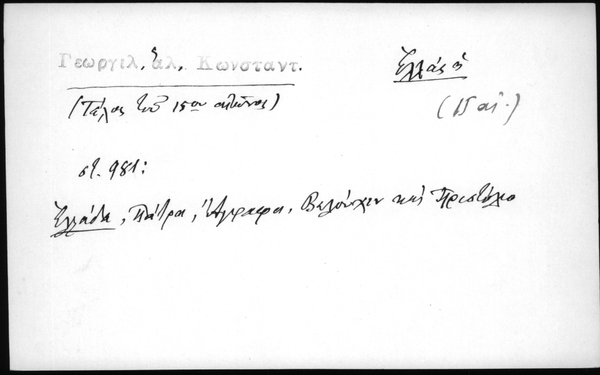 Γεωργιλ, ἁλ, Κωνσταντ.
Ἑλλάς ἡ
(Τέλος τοῦ 15ου αἰῶνος)
(15 αἰ.)
στ. 981:
Ἑλλάδα, Πάτρα, Ἄγραφα, Βελούχιν καὶ Πρωτόλιο